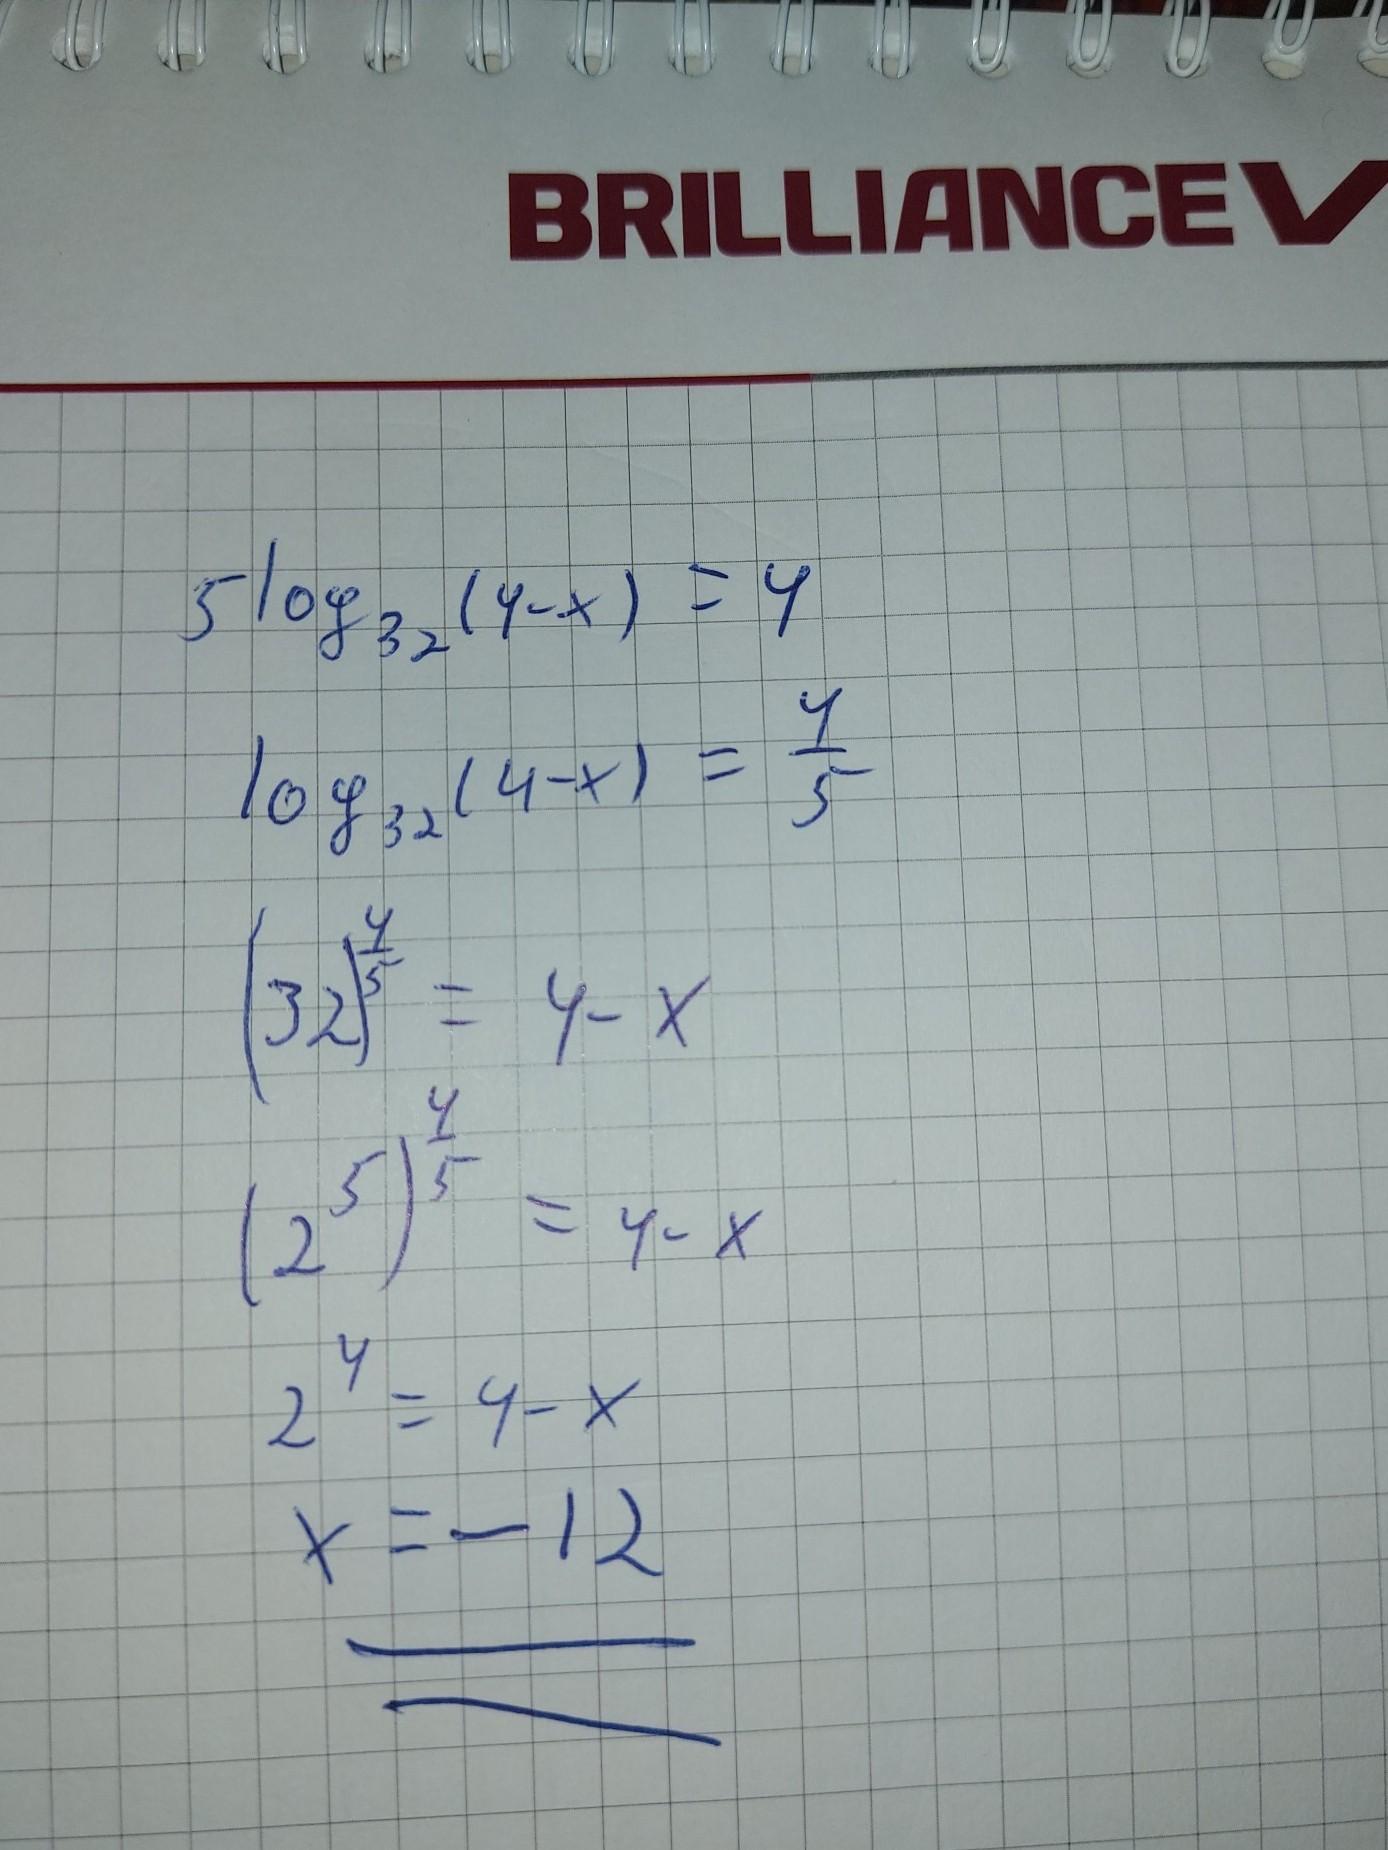 BRILLIANCE V
5 log₃₂ (4-x) = 4
log₃₂ (4-x) = 4/5
(32)^(4/5) = 4-x
(2⁵)^(4/5) = 4-x
2⁴ = 4-x
x = -12